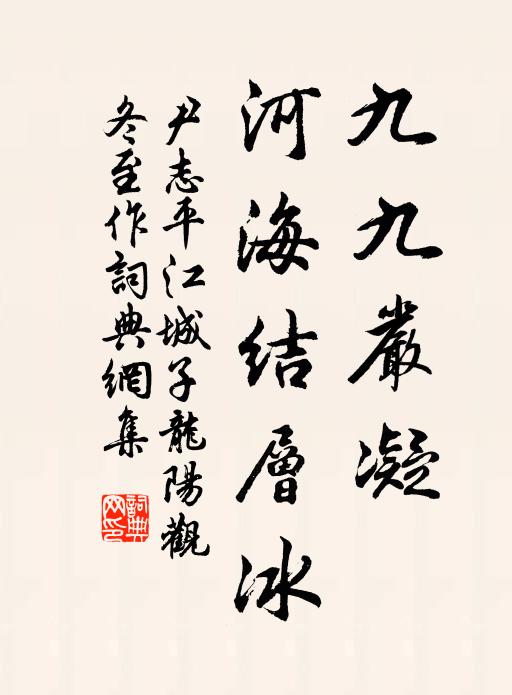 九九嚴凝
河海結層冰
尹志平江城子龍陽觀
冬至作詞典網集
詞典網印